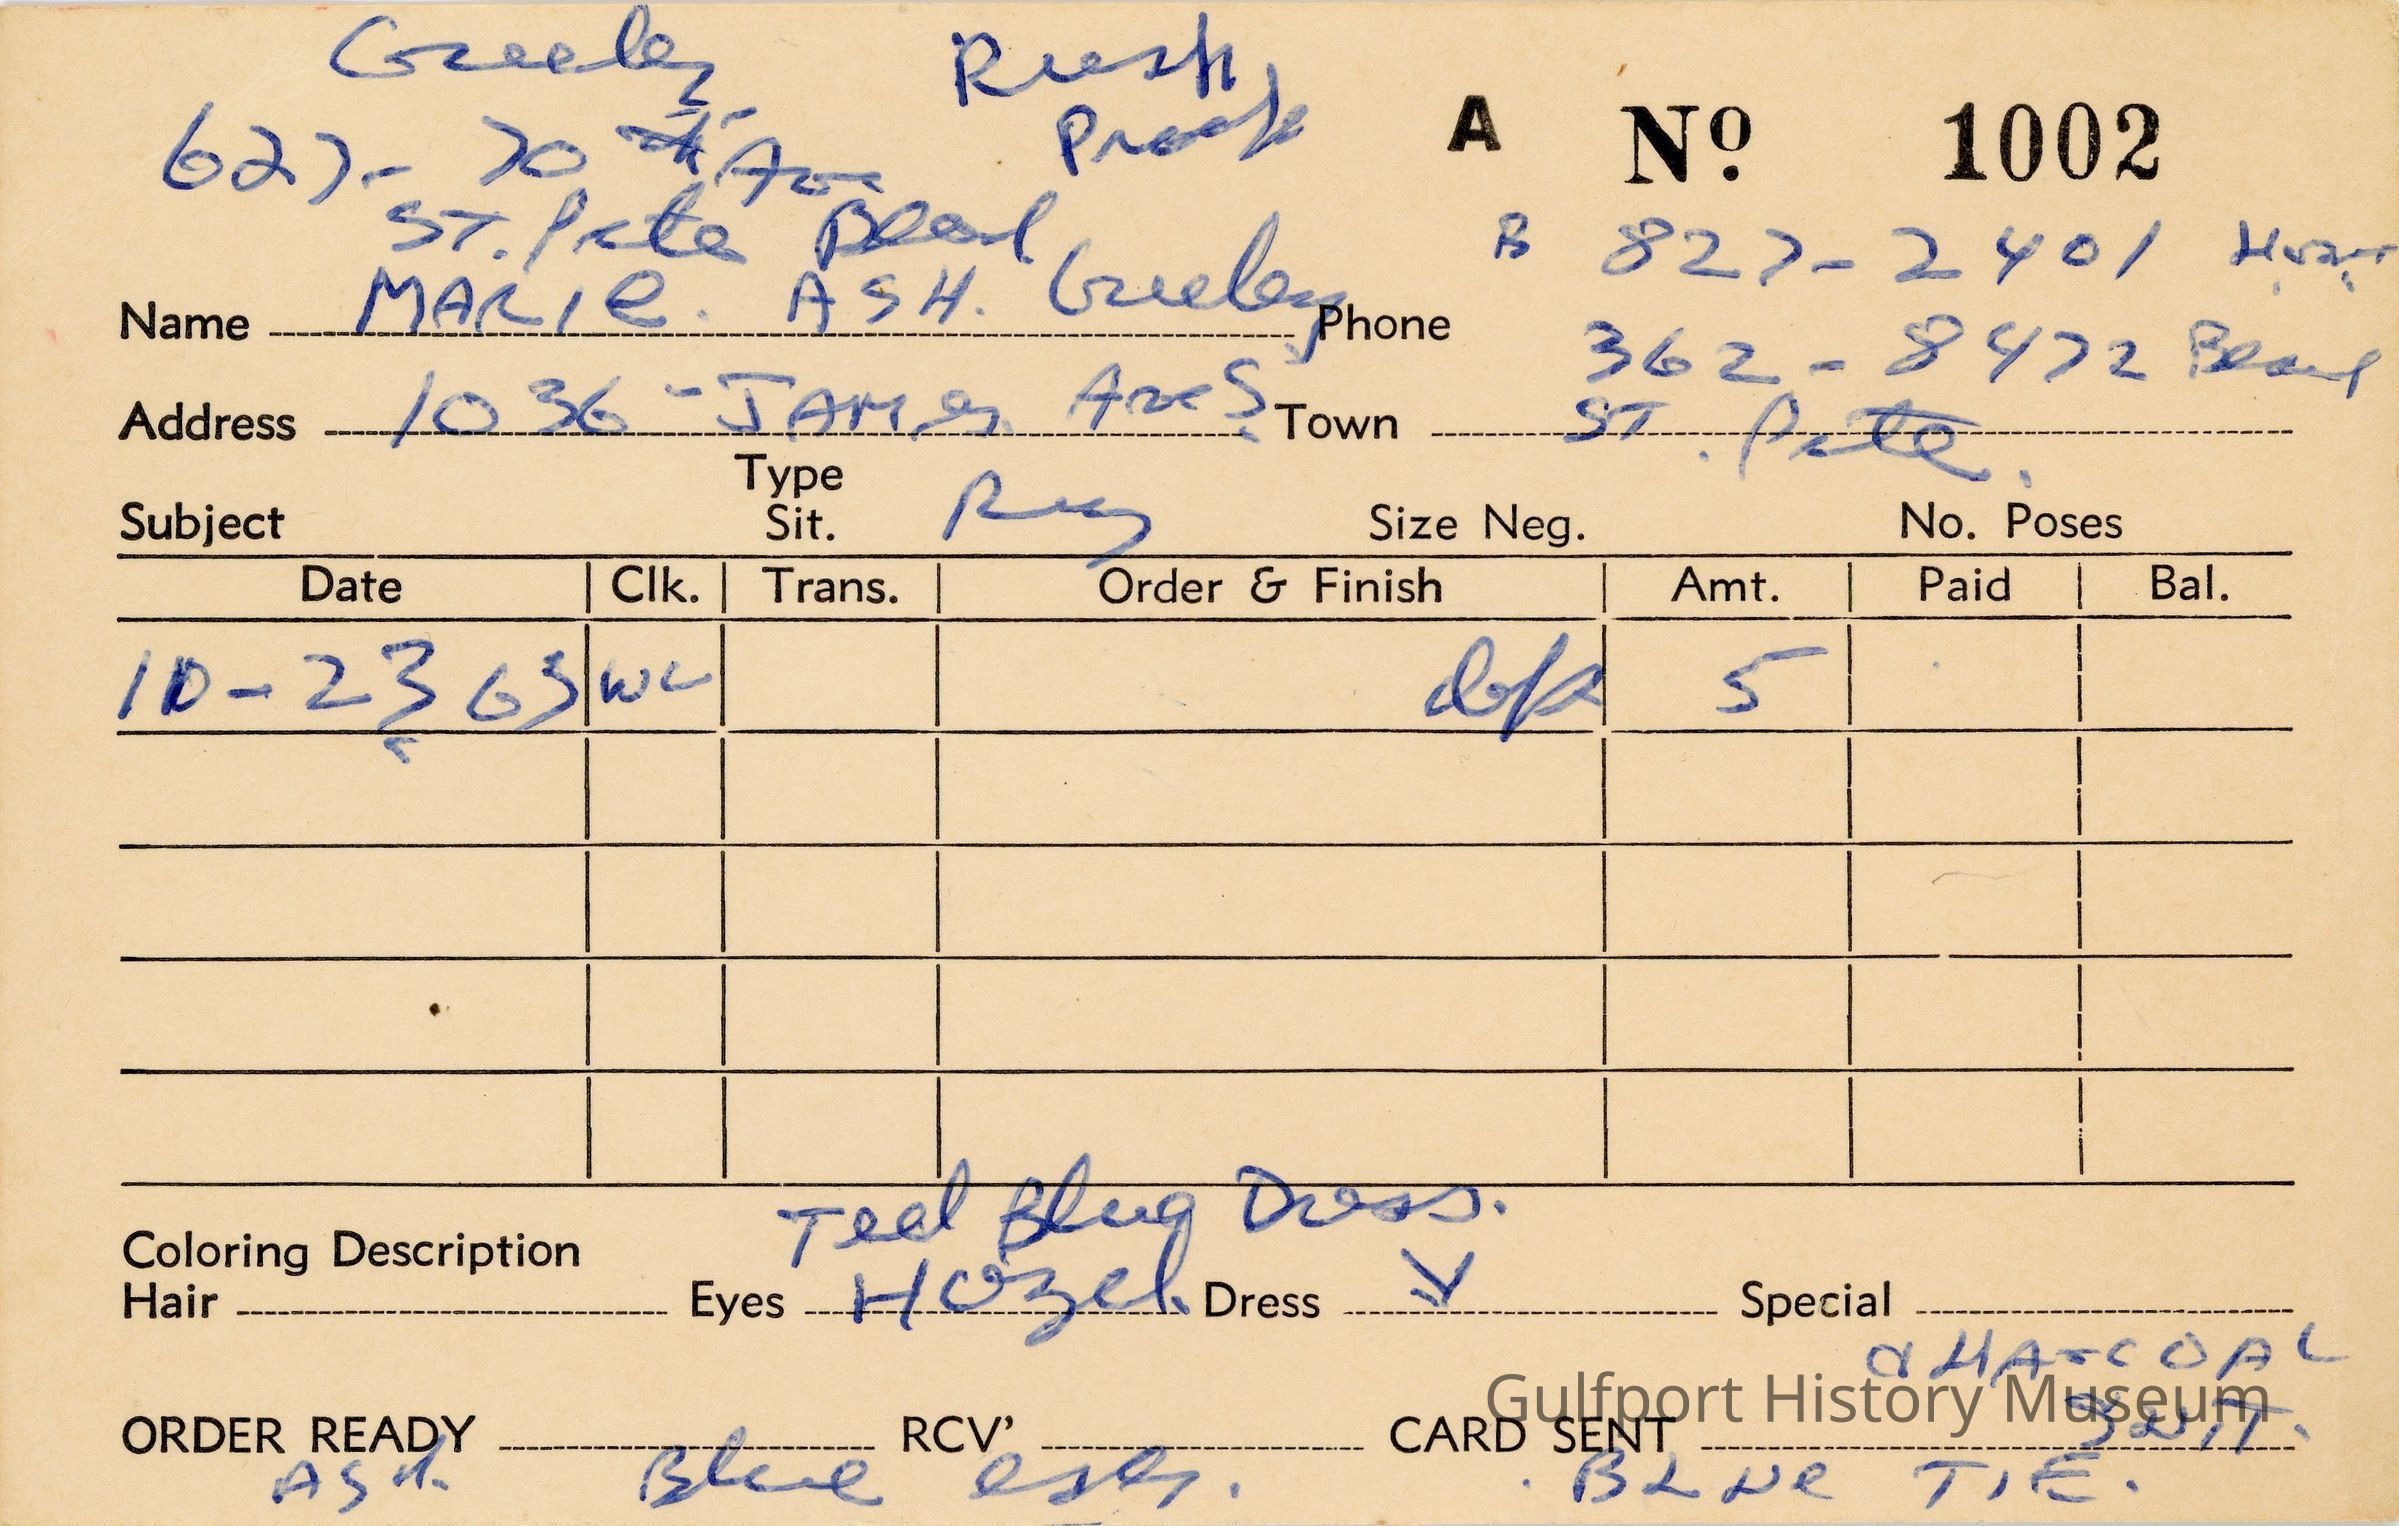 Greeley Rush
627 - 70th Ave Proofs
A Nº 1002
St. Pete Beach
B 827-2401 Home
Name MARIE. ASH. Greeley Phone
362-8472 Beach
Address 1036 - JAMES Ave S. Town St. Pete.
Type
Subject Sit. Reg Size Neg. No. Poses
Date Clk. Trans. Order & Finish Amt. Paid Bal.
10-23 63 WL dep 5
Teal Blue Dress.
Coloring Description
Hair Eyes Hazel. Dress Special
CHARCOAL
Gulfport History Museum
ORDER READY RCV' CARD SENT SUIT.
ASH. Blue eyes. BLUE TIE.